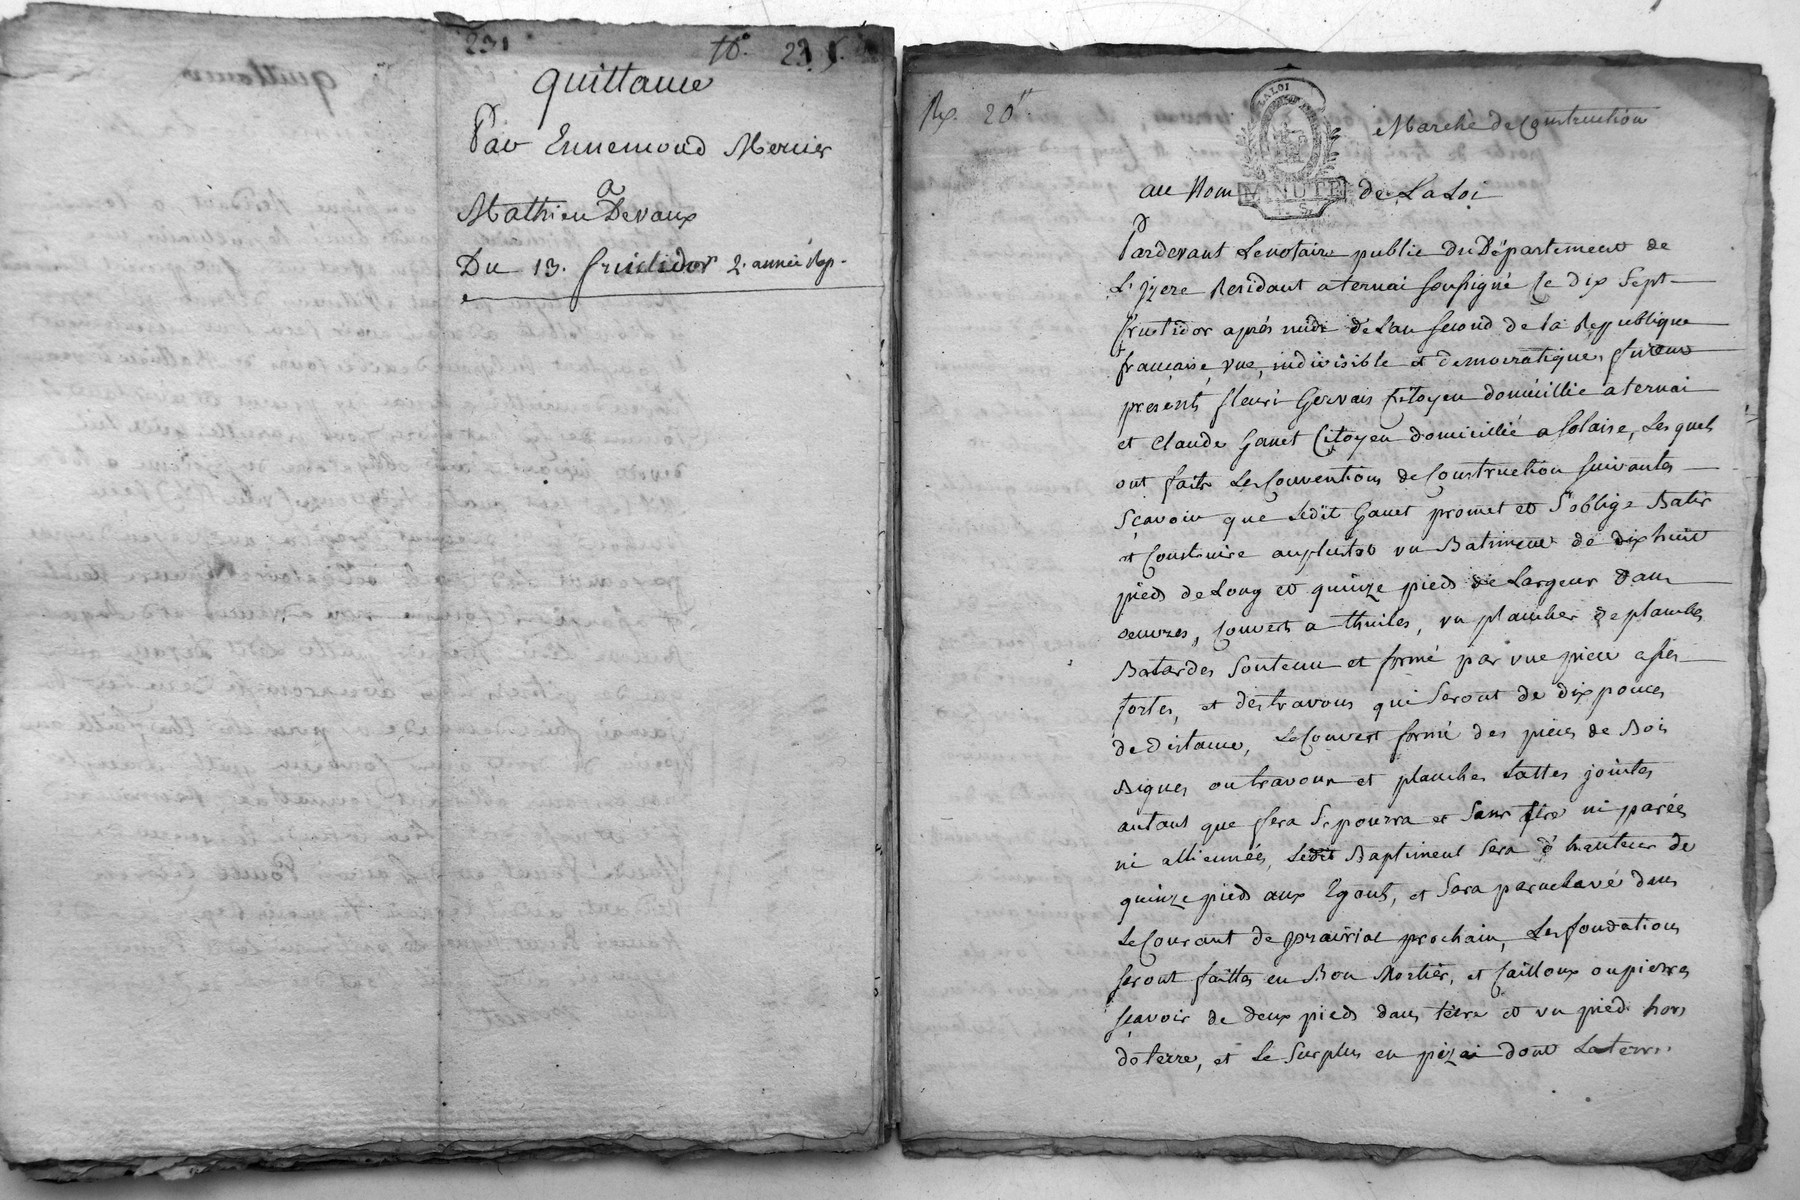 231
quittance
Par Ennemond Mercier
a
Mathieu Devaux
Du 13. fructidor 2. année Rep.
Rx. 20
LA LOI
Marché de Construction
au Nom MINUTE de La Loi
Pardevant Le notaire public Du Département de
L'Izere Residant a ternai soussigné Le dix sept
fructidor après midi de L'an second de la Republique
francaise, une, indivisible et democratique, furent
presents fleuri Gervais Citoyen domicillie a ternai
et Claude Ganet Citoyen domicillié a Solaise, Lesquels
ont faits Les Conventions de Construction suivantes
Sçavoir que Ledit Ganet promet et S'oblige Batir
et Construire au plutot un Batiment de dix huit
pieds de Long et quinze pieds de Largeur dans
oeuvres, Couvert a thuiles, un plancher de planches
Batardes Soutenu et formé par une piece asses
fortes, et des travons qui Seront de dix pouces
de distance, Le Couvert formé des pieces de Bois
Signes ou travons et planches Lattes jointes
autant que fera Se pourra et Sans être ni parées
ni alliennées, Ledit Baptiment Sera d'hauteur de
quinze pieds aux Egouts, et Sera parachevé dans
Le Courant de prairial prochain, Les fondations
seront faittes en Bon Mortier, et Cailloux ou pierres
sçavoir de deux pieds dans terre et un pied hors
de terre, et Le Surplus en pizai dont La terre